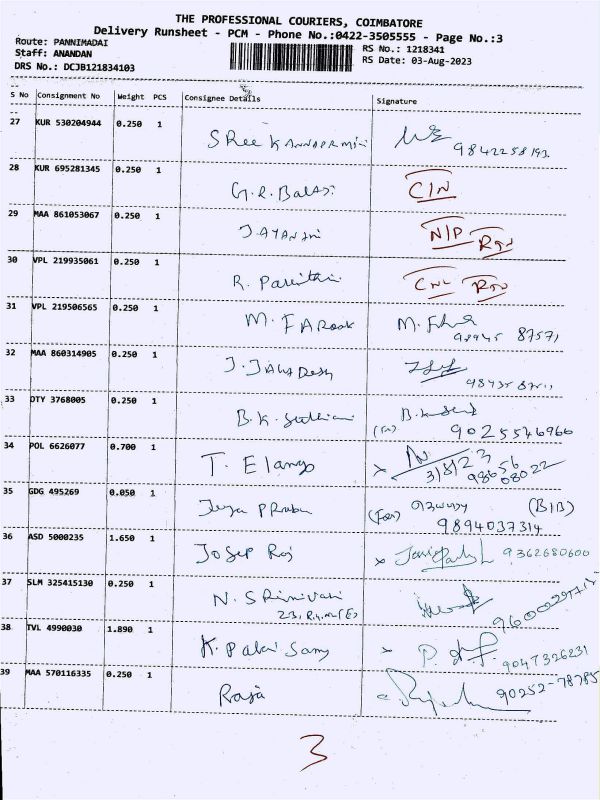 THE PROFESSIONAL COURIERS, COIMBATORE
Delivery Runsheet - PCM - Phone No.:0422-3505555 - Page No.:3
Route: PANNIMADAI
Staff: ANANDAN
DRS No.: DCJB121834103
RS No.: 1218341
RS Date: 03-Aug-2023
S No Consignment No Weight PCS Consignee Details Signature
27 KUR 530204944 0.250 1
9842258193
28 KUR 695281345 0.250 1 G.R. Balaji
29 MAA 861053067 0.250 1 Jayanthi N/P Rtn
30 VPL 219935061 0.250 1 R. Rtn
31 VPL 219506565 0.250 1 M. FAROOK M.
98945 87571
32 MAA 860314905 0.250 1
33 DTY 3768005 0.250 1 B.K.
9025546966
34 POL 6626077 0.700 1 T. Elango
3/8/23 98656 08022
35 GDG 495269 0.050 1 (For) (B/B)
9894037314
36 ASD 5000235 1.650 1 Josep Raj 9362680600
37 SLM 325415130 0.250 1 N. Srinivasan
38 TVL 4990030 1.890 1 K. Palani Samy
9047326231
39 MAA 570116335 0.250 1 Raja 90252-78785
3